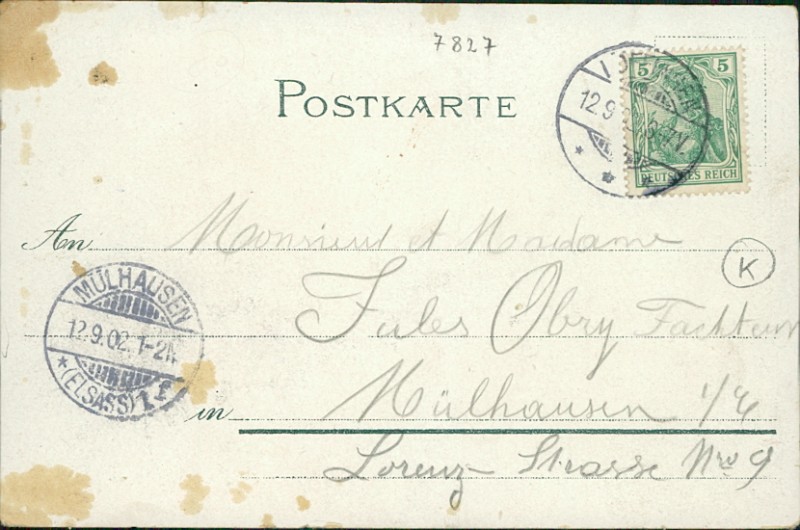 7827
POSTKARTE
5 5
DEUTSCHES REICH
12.9
An Monsieur et Madame
K
Jules Obry
MÜLHAUSEN
12.9.02. 1-2N.
* (ELSASS) 1 f
in Mülhausen i/E
Lorenz-Strasse Nro 9